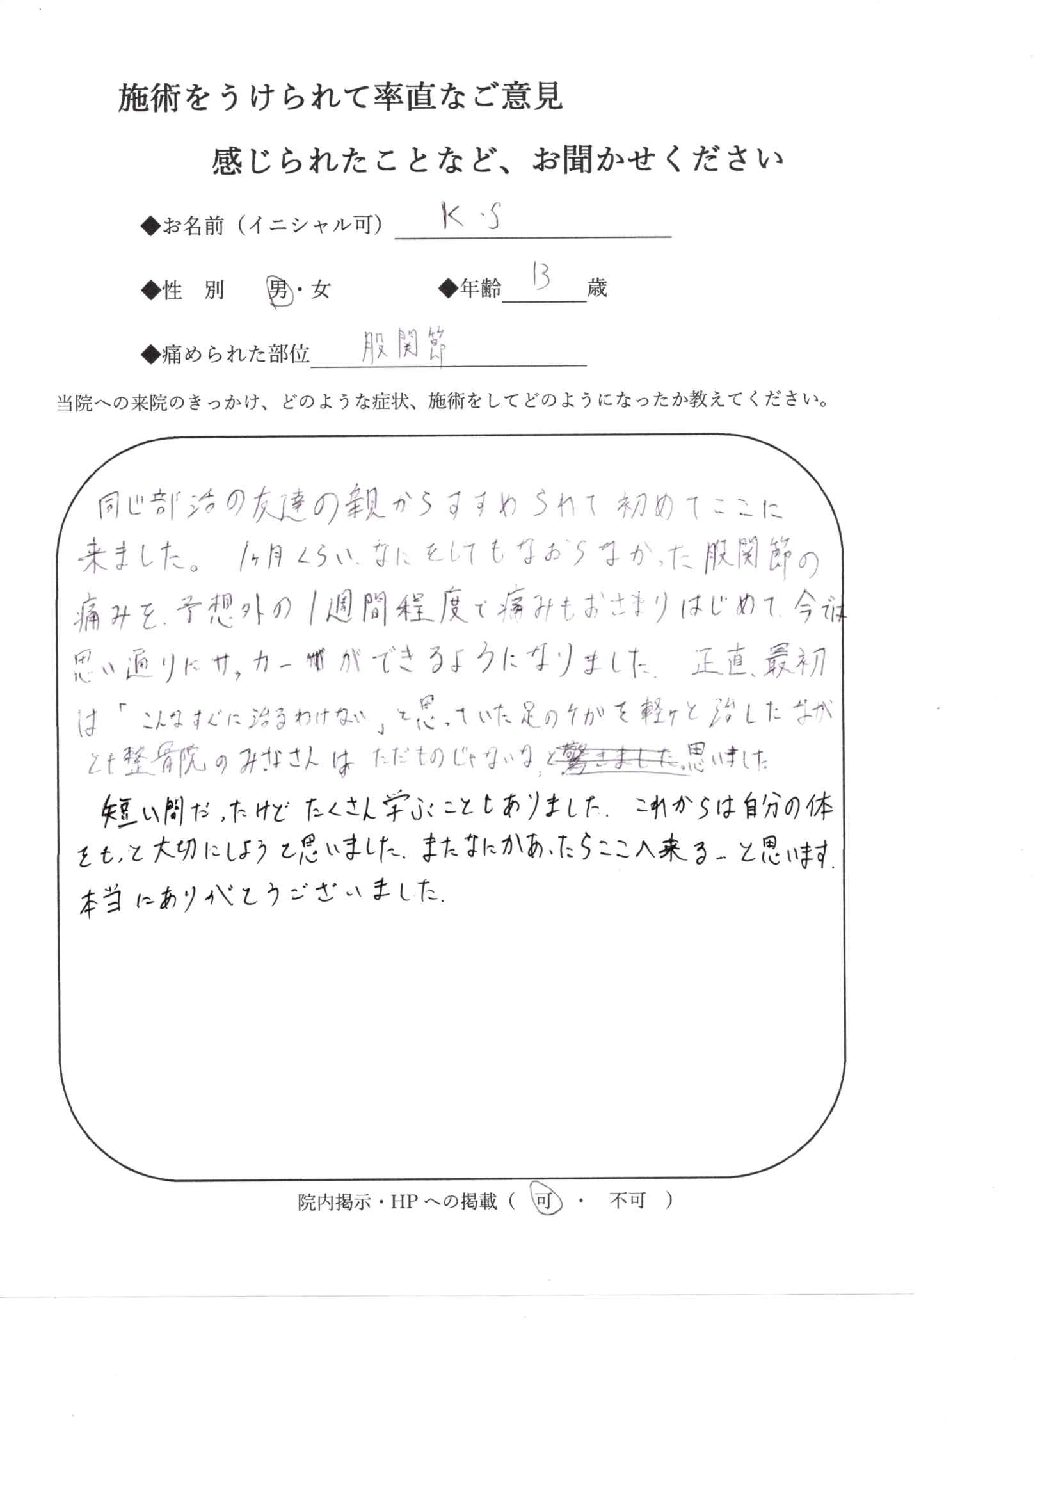 施術をうけられて率直なご意見
感じられたことなど、お聞かせください
◆お名前（イニシャル可） K.S
◆性 別 男・女 ◆年齢 13 歳
◆痛められた部位 股関節
当院への来院のきっかけ、どのような症状、施術をしてどのようになったか教えてください。
同じ部活の友達の親からすすめられて初めてここに
来ました。 1ヶ月くらい、なにをしてもなおらなかった股関節の
痛みを、予想外の1週間程度で痛みもおさまりはじめて、今では
思い通りにサッカーがができるようになりました。 正直、最初
は「こんなすぐに治るわけない」と思っていた足のケガを軽々と治したなが
とも整骨院のみなさんはただものじゃないな、と驚きました思いました
短い間だったけどたくさん学ぶこともありました。 これからは自分の体
をもっと大切にしようと思いました。またなにかあったらここへ来るーと思います。
本当にありがとうございました。
院内掲示・HPへの掲載（ 可 ・ 不可 ）